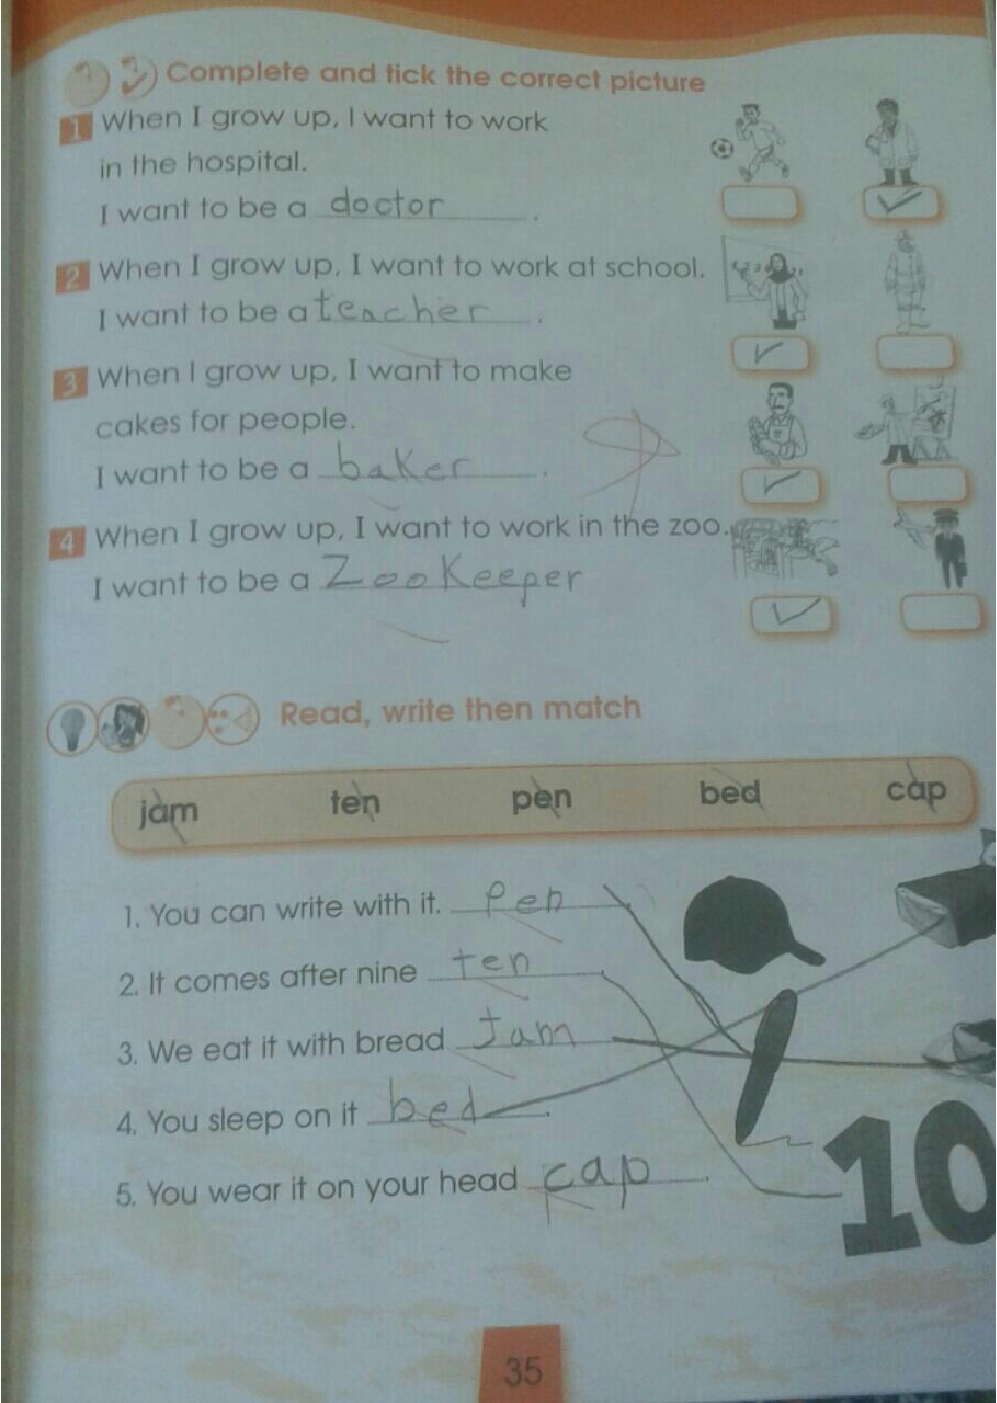 Complete and tick the correct picture
1 When I grow up, I want to work
in the hospital.
I want to be a doctor.
2 When I grow up, I want to work at school.
I want to be a teacher.
3 When I grow up, I want to make
cakes for people.
I want to be a baker.
4 When I grow up, I want to work in the zoo.
I want to be a Zookeeper
Read, write then match
jam ten pen bed cap
1. You can write with it. Pen
2. It comes after nine ten
3. We eat it with bread Jam
4. You sleep on it bed.
5. You wear it on your head cap.
10
35